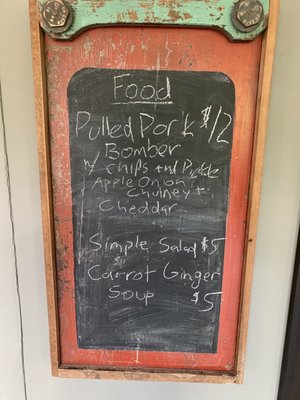 Food
Pulled Pork $12
Bomber
w/ chips and Pickle
Apple Onion
Chutney +
Cheddar
Simple Salad $5
Carrot Ginger
Soup $5